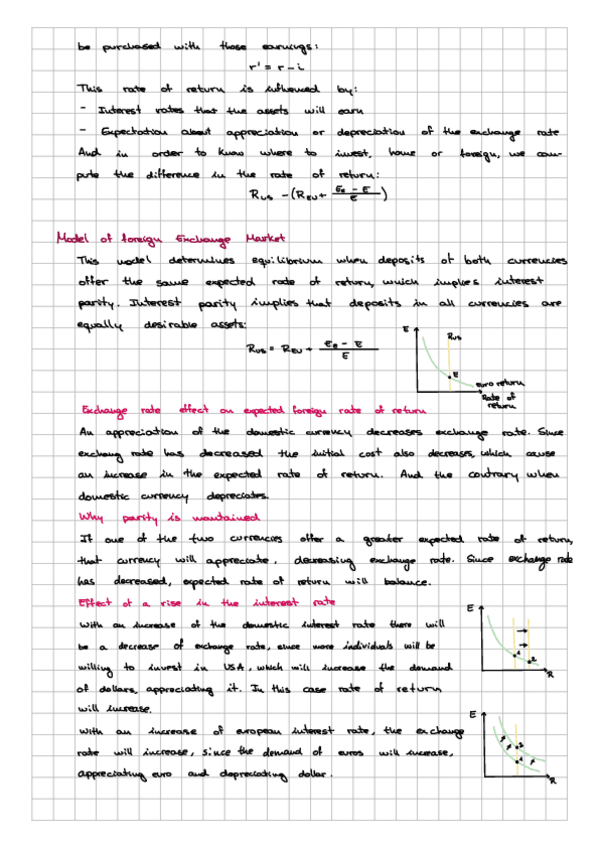 be purchased with those earnings:
r' = r - i
This rate of return is influenced by:
- Interest rates that the assets will earn
- Expectation about appreciation or depreciation of the exchange rate
And in order to know where to invest, home or foreign, we com-
pute the difference in the rate of return:
R_US - (R_EU + (E_e - E)/E)
Model of foreign Exchange Market
This model determines equilibrium when deposits of both currencies
offer the same expected rate of return, which implies interest
parity. Interest parity implies that deposits in all currencies are
equally desirable assets:
R_US = R_EU + (E_e - E)/E
E
R_US
E
euro return
Rate of
return
Exchange rate effect on expected foreign rate of return
An appreciation of the domestic currency decreases exchange rate. Since
exchang rate has decreased the initial cost also decreases, which cause
an increase in the expected rate of return. And the contrary when
domestic currency depreciates.
Why parity is mantained
If one of the two currencies offer a greater expected rate of return,
that currency will appreciate, decreasing exchange rate. Since exchange rate
has decreased, expected rate of return will balance.
Effect of a rise in the interest rate
With an increase of the domestic interest rate there will
be a decrease of exchange rate, since more individuals will be
willing to invest in USA, which will increase the demand
of dollars, appreciating it. In this case rate of return
will increase.
E
1
2
R
With an increase of european interest rate, the exchange
rate will increase, since the demand of euros will increase,
appreciating euro and depreciating dollar.
E
2
1
R